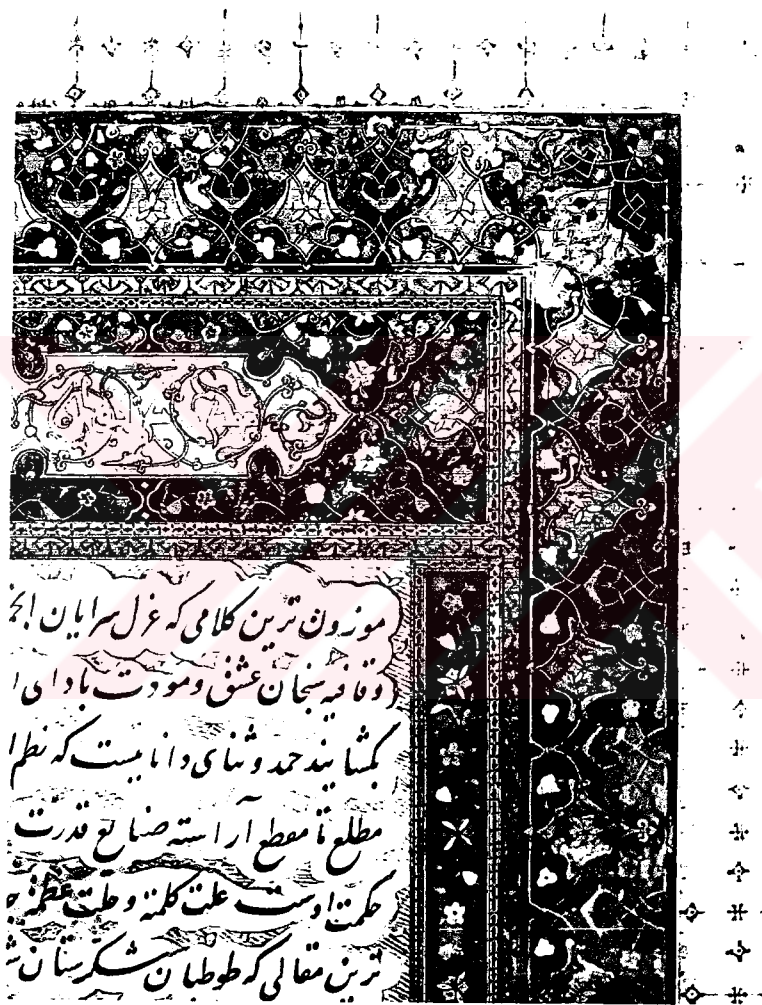 موزون ترین کلامی که غزل سرایان
و قافیه سنجان عشق و مودت بادای
بگشایند حمد و ثنای داناییست که نظم
مطلع تا مقطع آراسته صنایع قدرت
حکمت اوست علت کلمته و جلت عظمته
ترین مقالی که طوطیان شکرستان